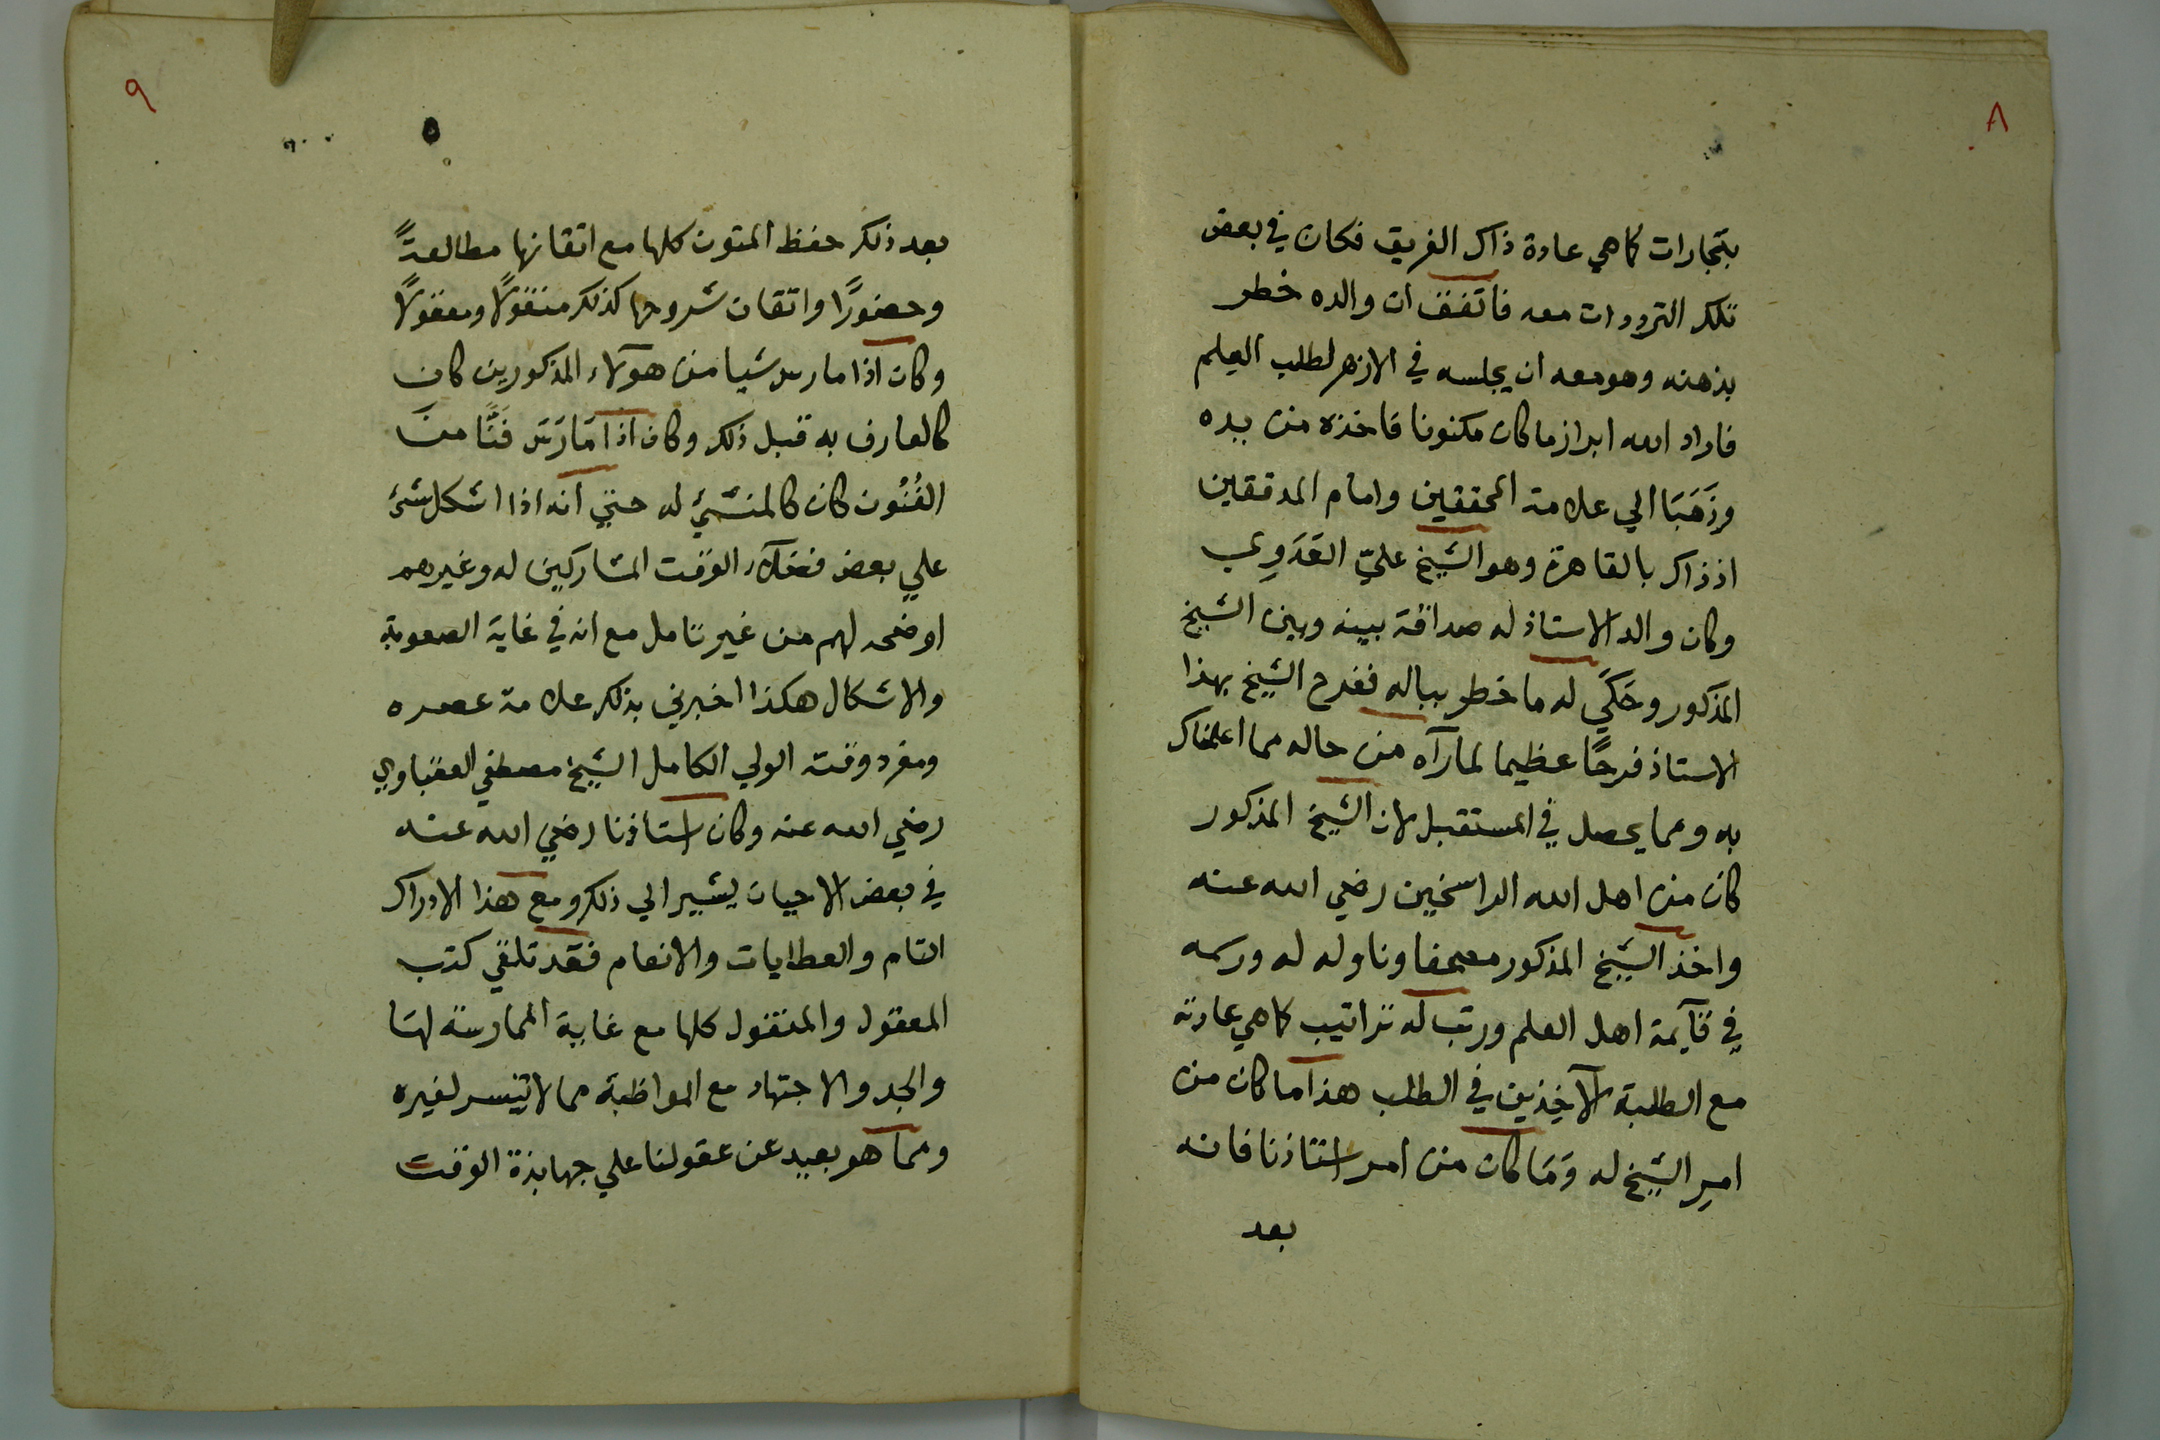 ٨
بتجارات كما هي عادة ذاك الفريق فكان في بعض
تلك الترددات معه فاتفق ان والده خطر
بذهنه وهو معه ان يجلسه في الازهر لطلب العلم
فاراد الله ابراز ما كان مكنونا فاخذه من يده
وذَهَبَا الي علامة المحققين وامام المدققين
اذ ذاك بالقاهرة وهو الشيخ عليّ العَدَوِي
وكان والد الاستاذ له صداقة بينه وبين الشيخ
المذكور وحَكَي له ما خطر بباله ففرح الشيخ بهذا
الاستاذ فرحًا عظيما لما رآه من حاله مما اعلمناك
به ومما يحصل في المستقبل لان الشيخ المذكور
كان من اهل الله الراسخين رضي الله عنه
واخذ الشيخ المذكور مصحفا وناوله له ورسمه
في قآيمة اهل العلم ورتب له تراتيب كما هي عادته
مع الطلبة الآخِذين في الطلب هذا ما كان من
امرِ الشيخ له وَمَا كان من امر استاذنا فانه
بعد
٩
٥
بعد ذلك حفظ المتون كلها مع اتقانها مطالعةً
وحضورًا واتقان شروحها كذلك منقولًا ومعقولًا
وكان اذا مارس شيا من هولآء المذكورين كان
كالعارف به قبل ذلك وكان اذا مَارَسَ فَنًّا منَ
الفُنُون كان كالمنشيْ له حتي انه اذا اشكل شيْ
علي بعض فضلآء الوقت المشاركين له وغيرهم
اوضحه لهم من غير تامل مع انه في غاية الصعوبة
والاشكال هكذا اخبرني بذلك علامة عصره
ومفرد وقته الولي الكامل الشيخ مصطفي العقباوي
رضي الله عنه وكان استاذنا رضي الله عنه
في بعض الاحيان يشير الي ذلك ومع هذا الادراك
التام والعطايات والانعام فقد تلقي كتب
المعقول والمنقول كلها مع غاية الممارسة لها
والجد والاجتهاد مع المواظبة مما لا تيسر لغيره
ومما هو بعيد عن عقولنا علي جهابذة الوقت